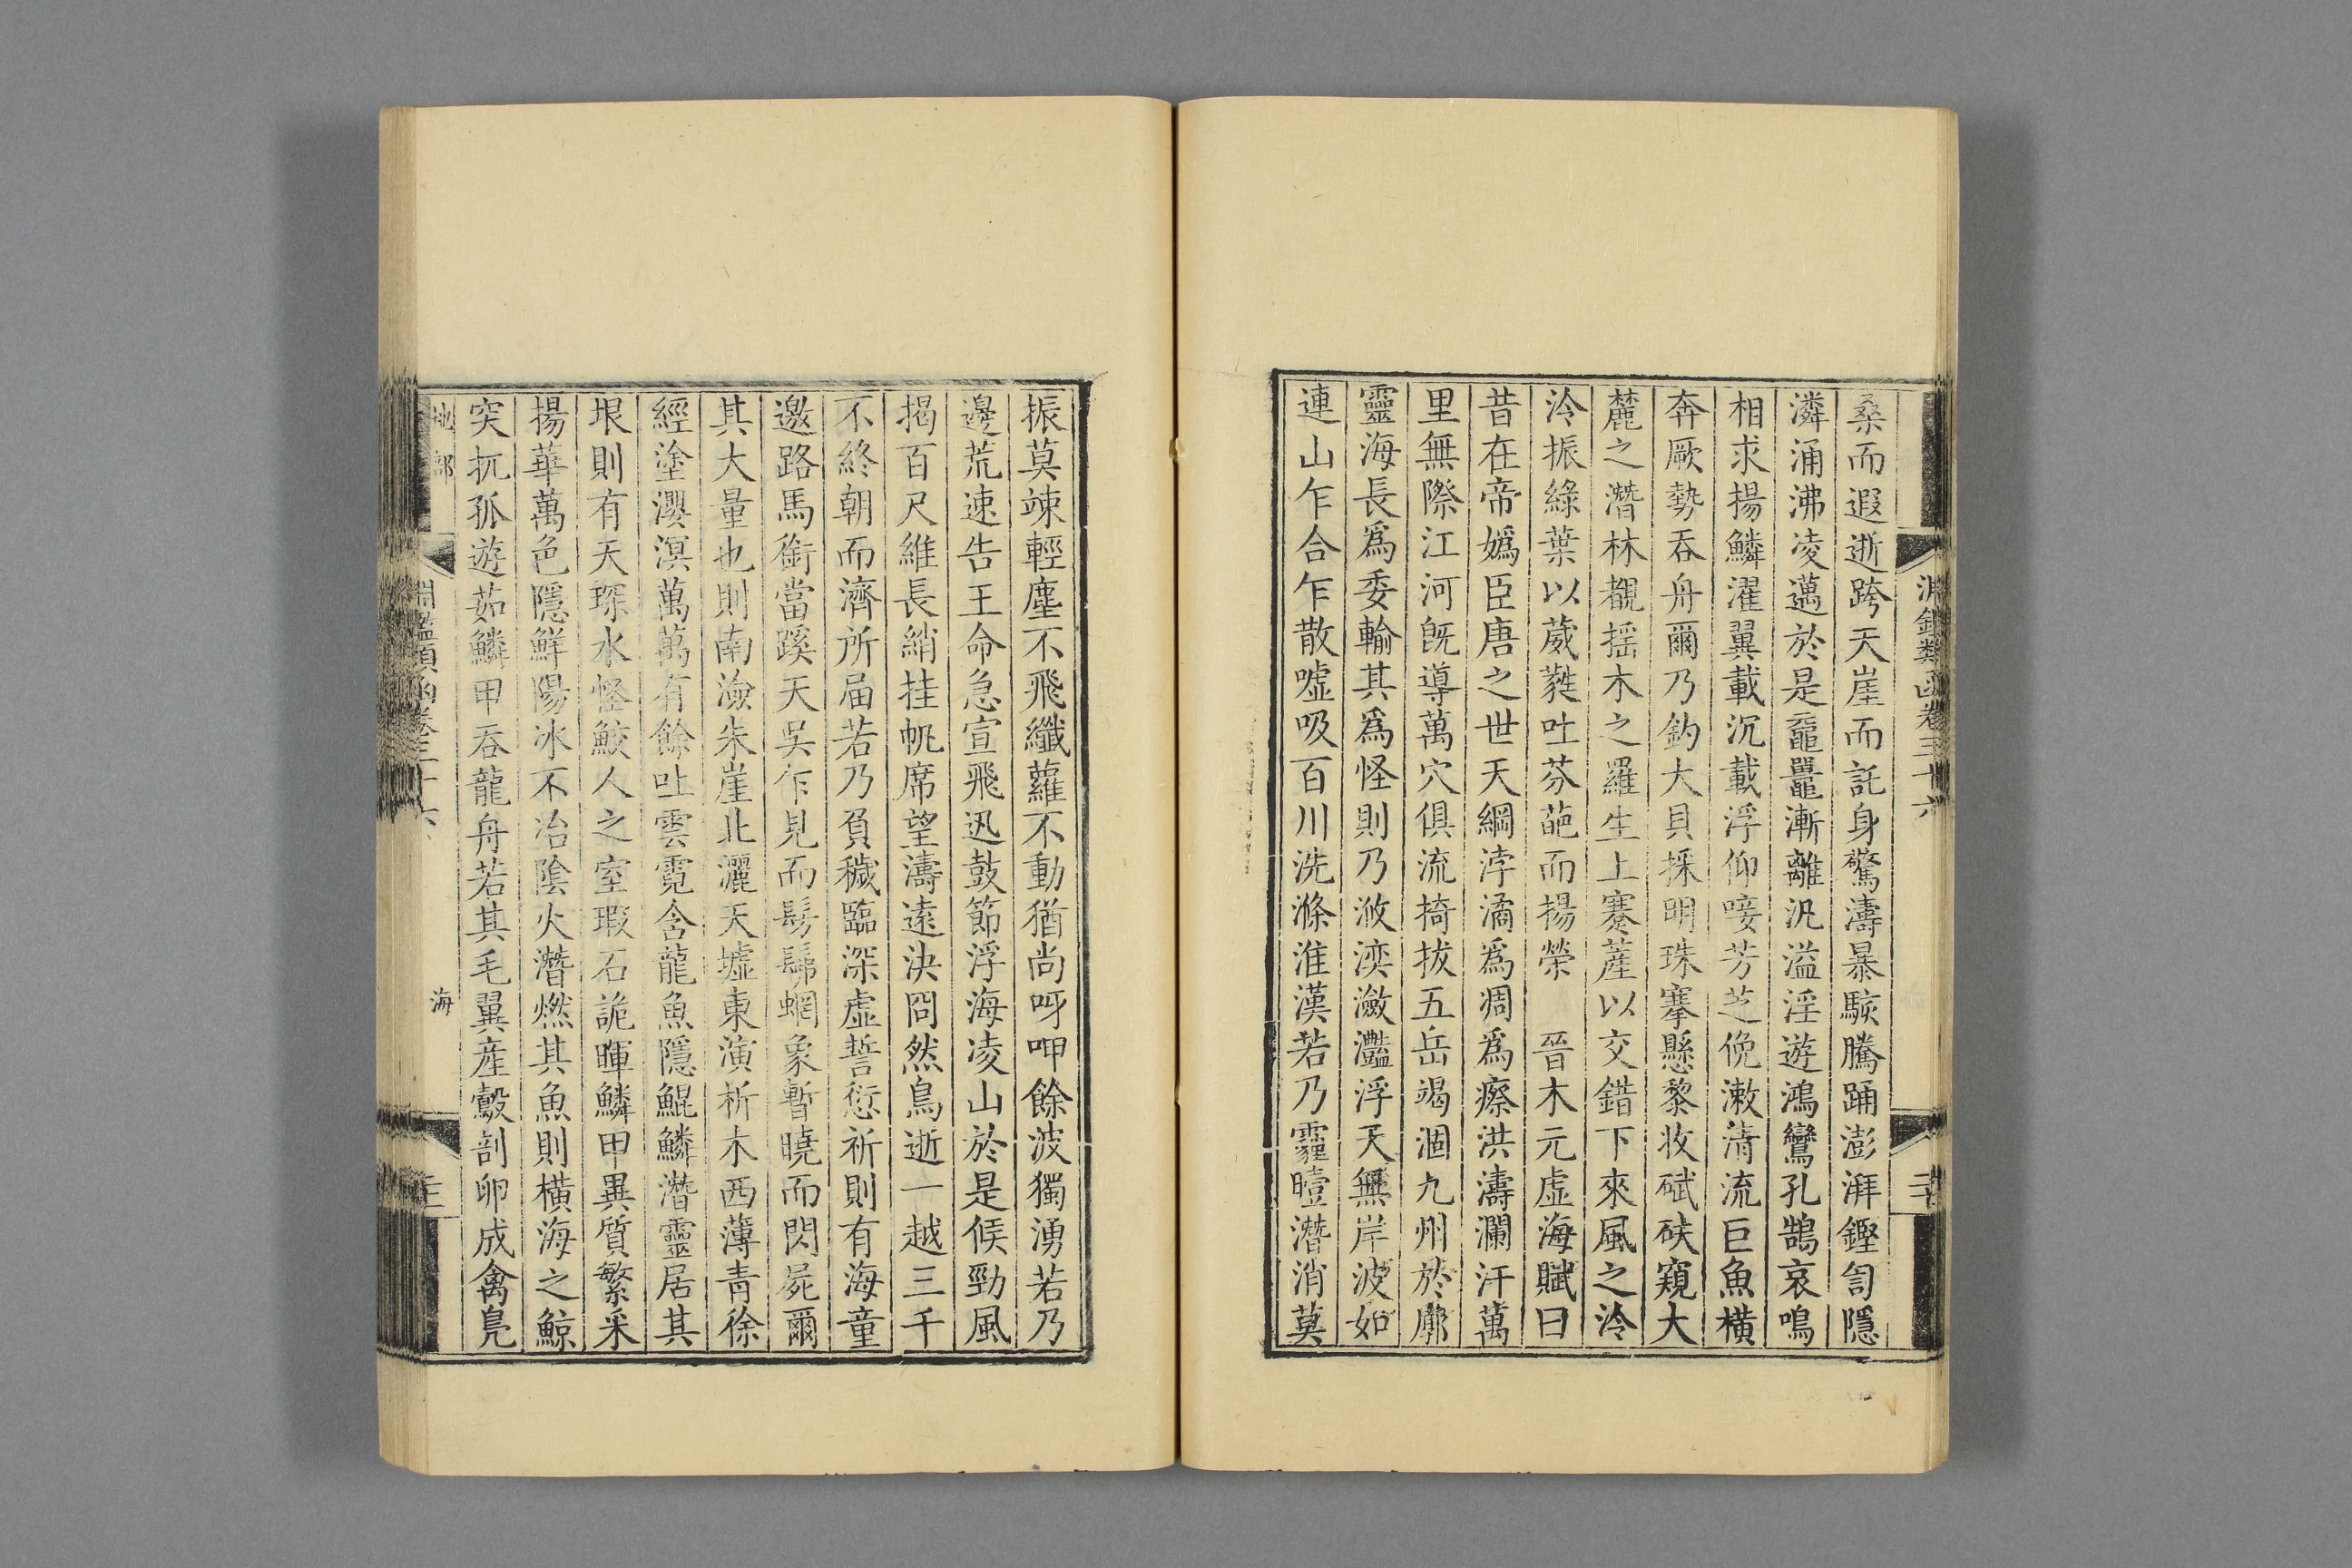 淵鑑類函卷三十六
桑而遐逝跨天崖而託身驚濤暴駭騰踊澎湃鏗訇隱
潾涌沸凌邁於是黿鼉漸離汎溢淫遊鴻鸞孔鵠哀鳴
相求揚鱗濯翼載沉載浮仰唼芳芝俛漱清流巨魚橫
奔厥勢吞舟爾乃釣大貝採明珠搴懸黎收碔砆窺大
麓之潛林覩摇木之羅生上蹇產以交錯下來風之泠
泠振綠葉以葳蕤吐芬葩而揚榮　晉木元虛海賦曰
昔在帝嬀臣唐之世天綱浡潏爲凋爲瘵洪濤瀾汗萬
里無際江河既導萬穴俱流掎拔五岳竭涸九州於廓
靈海長爲委輸其爲怪則乃浟湙瀲灩浮天無岸波如
連山乍合乍散噓吸百川洗滌淮漢若乃霾曀潛消莫
振莫竦輕塵不飛纖蘿不動猶尚呀呷餘波獨湧若乃
邊荒速告王命急宣飛迅鼓節浮海凌山於是候勁風
揭百尺維長綃挂帆席望濤遠決冏然鳥逝一越三千
不終朝而濟所届若乃負穢臨深虛誓愆祈則有海童
邀路馬銜當蹊天吳乍見而髣髴蝄象暫曉而閃屍爾
其大量也則南澰朱崖北灑天墟東演析木西薄青徐
經塗瀴溟萬萬有餘吐雲霓含龍魚隱鯤鱗潛靈居其
垠則有天琛水怪鮫人之室瑕石詭暉鱗甲異質繁采
揚華萬色隱鮮陽冰不冶陰火潛燃其魚則橫海之鯨
突扤孤遊茹鱗甲吞龍舟若其毛翼產鷇剖卵成禽鳧
地部
淵鑑類函卷三十六
海